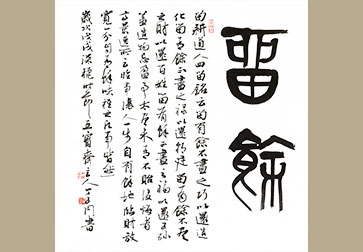 留餘
留耕道人四留銘云留有餘不盡之巧以還造
化留有餘不盡之祿以還朝廷留有餘不盡
之財以還百姓留有餘不盡之福以還子孫
蓋造物忌盈事太盡未有不貽後悔者
高景逸所云臨事讓人一步自有餘地臨財放
寬一分自有餘味推之凡事皆然
歲次戊戌深秋時節五寶齋主人書